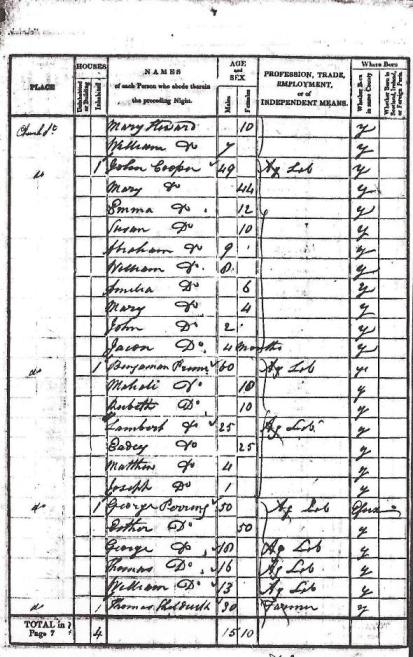 PLACE
HOUSES
Uninhabited or Building
Inhabited
NAMES
of each Person who abode therein the preceding Night.
AGE and SEX
Males
Females
PROFESSION, TRADE, EMPLOYMENT, or of INDEPENDENT MEANS.
Where Born
Whether Born in same County
Whether Born in Scotland, Ireland, or Foreign Parts.
Church St Mary 10 y
William Do 7 y
do 1 John Cooper 49 Ag Lab y
Mary Do 44 y
Emma Do 12 y
Susan Do 10 y
Abraham Do 9 y
William Do 8 y
Amelia Do 6 y
Mary Do 4 y
John Do 2 y
Jacon Do 4 Months y
do 1 Benjaman 60 Ag Lab y
Mahali Do y
Do 10 y
Lambert Do 25 Ag Lab y
Do 25 y
Matthew Do 4 y
Joseph Do 1 y
do 1 George Perring 50 Ag Lab
Esther Do 50 y
George Do Ag Lab y
Thomas Do 16 Ag Lab y
William Do 13 Ag Lab y
do 1 Thomas 30 Farmer y
TOTAL in Page 7 4 15 10